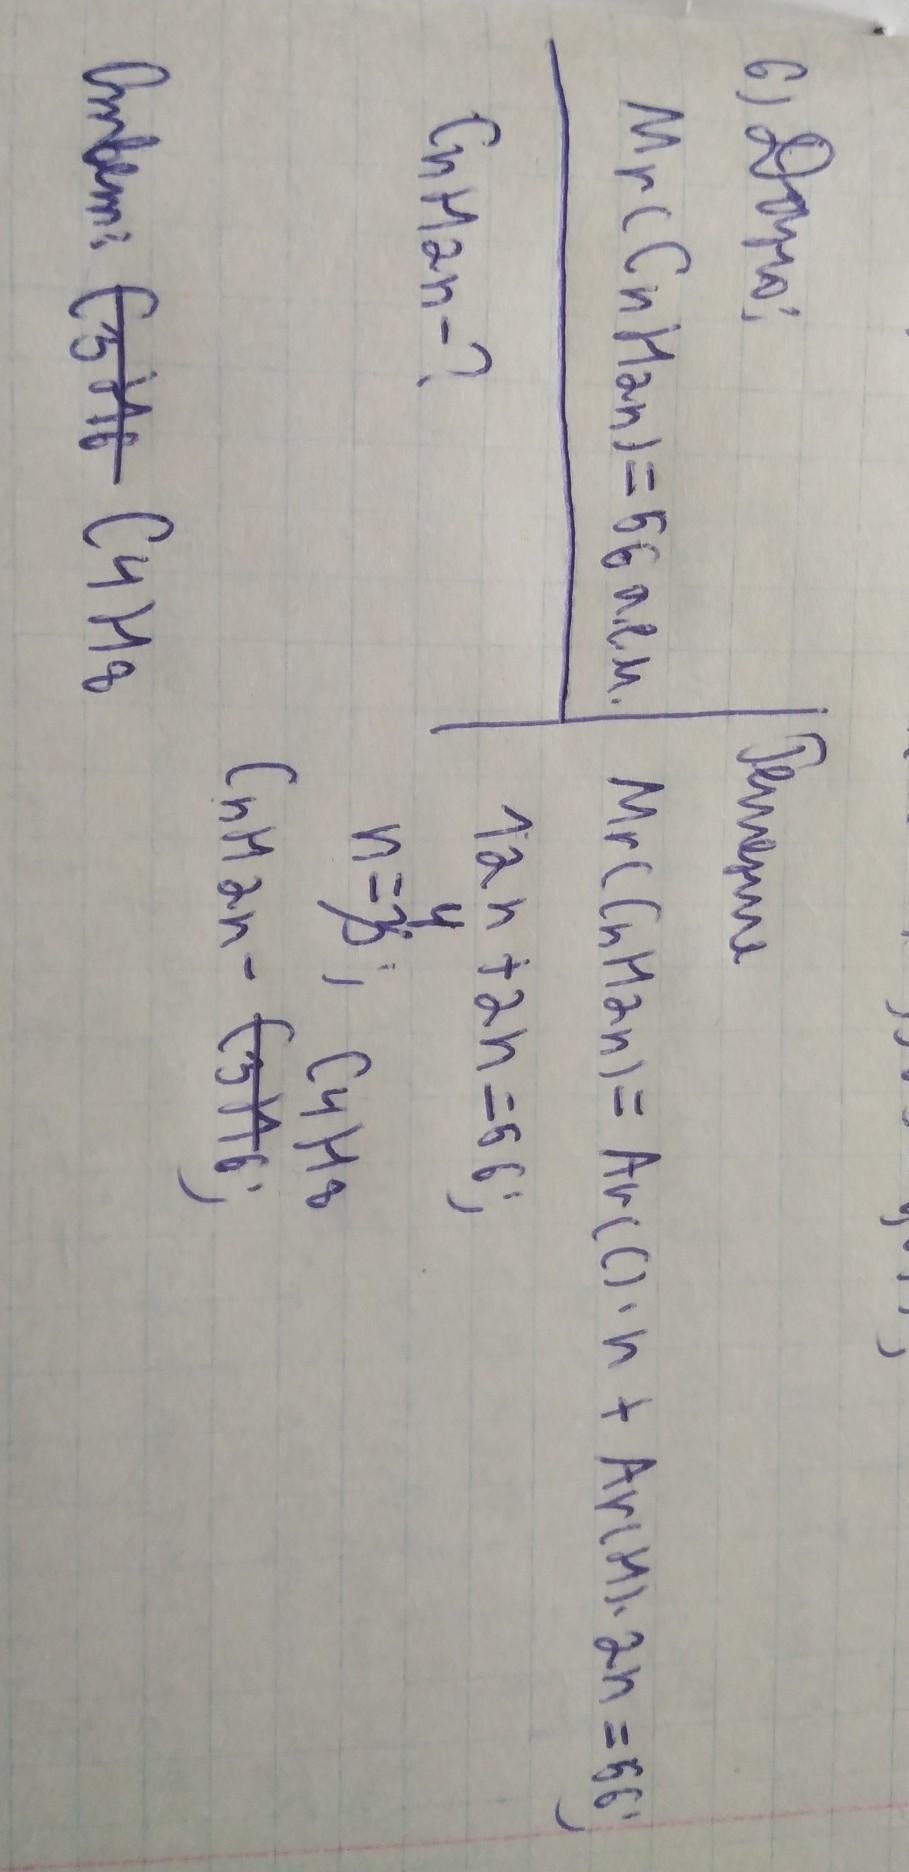 6) Дано:
Mr(CnH2n)=56 а.е.м.
CnH2n-?
Решение
Mr(CnH2n)=Ar(C)·n+Ar(H)·2n=56;
12n+2n=56;
n=4;
C4H8
CnH2n-C3H6;
Ответ: C3H6 C4H8